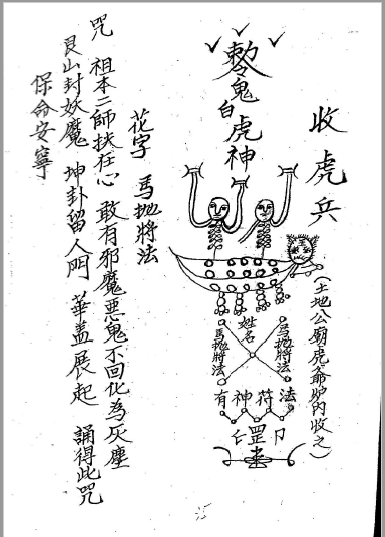 收虎兵
(土地公廟虎爺炉內收之)
敕令鬼
白虎神
姓名
馬拋將法
馬拋將法
有神符法
罡
花字 馬拋將法
咒 祖本二師扶在心 敢有邪魔惡鬼不回化為灰塵
艮山封妖魔 坤卦留人門 華盖展起 誦得此咒
保命安寧